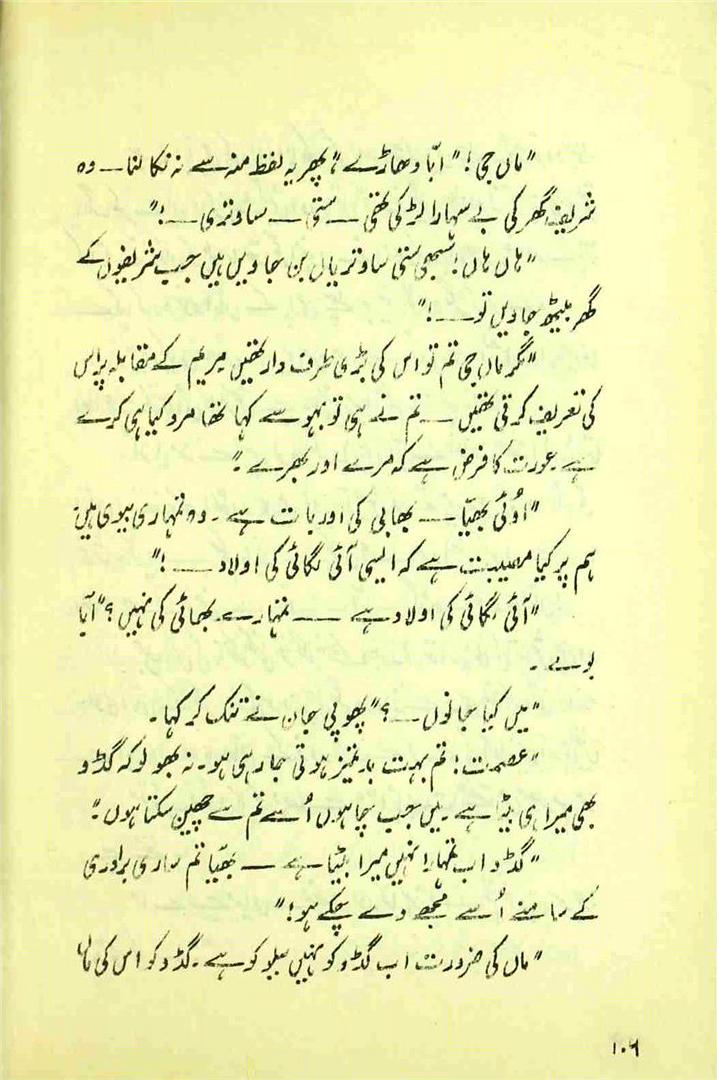 "ماں جی!" ابّا دھاڑے، "پھر یہ لفظ منہ سے نہ نکالنا — وہ
شریف گھر کی بے سہارا لڑکی تھی — ستی — ساوتری —!"
"ہاں ہاں! سبھی ستی ساوتریاں بن جاویں ہیں جب شریفوں کے
گھر بیٹھ جاویں تو —!"
"مگر ماں جی تم تو اس کی بڑی طرف دار تھیں مریم کے مقابلہ پر اس
کی تعریف کرتی تھیں — تم نے ہی تو بہو سے کہا تھا مرد کیا ہی کرے
ہے۔ عورت کا فرض ہے کہ مرے اور بھرے۔"
"اوئی بھیّا — بھابی کی اور بات ہے۔ وہ تمہاری بیوی ہیں
ہم پر کیا مصیبت ہے کہ ایسی آئی لگائی کی اولاد —!"
"آئی لگائی کی اولاد ہے — تمہارے بھائی کی نہیں؟" ابّا
بولے۔
"میں کیا جانوں —؟" پھوپی جان نے تنک کر کہا۔
"عصمت! تم بہت بدتمیز ہوتی جا رہی ہو۔ نہ بھولو کہ گڈو
بھی میرا ہی بیٹا ہے۔ میں جب چاہوں اُسے تم سے چھین سکتا ہوں۔"
"گڈو اب تمہارا نہیں میرا بیٹا ہے — بھیّا تم ساری برادری
کے سامنے اُسے مجھے دے چکے ہو!"
"ماں کی ضرورت اب گڈو کو نہیں ببلو کو ہے۔ گڈو کو اس کی ماں
۱۰۶